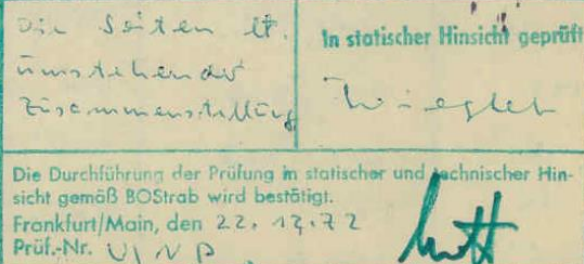 Die Seiten lt.
umstehender
Zusammenstellung
In statischer Hinsicht geprüft
Die Durchführung der Prüfung in statischer und technischer Hin-
sicht gemäß BOStrab wird bestätigt.
Frankfurt/Main, den 22.12.72
Prüf.-Nr.